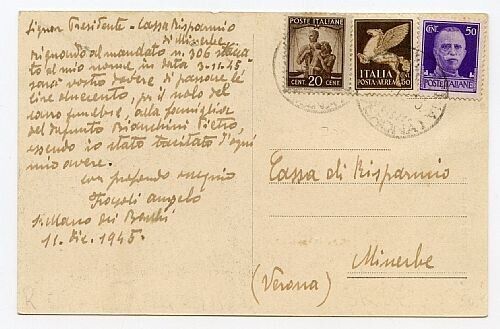 Signor Presidente - Cassa Risparmio
di Minerbe
Riguardo al mandato n. 306
to al mio nome, in data 3-11-45
sarà vostro dovere di
lire, per il nolo del
carro funebre, alla famiglia
del defunto Bianchini Pietro,
essendo io stato tacitato d'ogni
mio avere.
con profondo
Angelo
S. Mano dei
11. Dic. 1945.
POSTE ITALIANE
20
CENT CENT
ITALIA
POSTA AEREA
50
CENT. 50
POSTE ITALIANE
Cassa di Risparmio
Minerbe
(Verona)